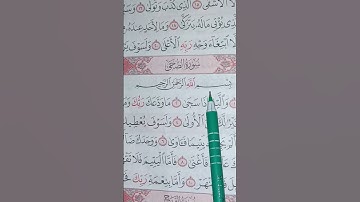 الْأَشْقَى ١٥ الَّذِي كَذَّبَ وَتَوَلَّى ١٦
يُؤْتِي مَالَهُ يَتَزَكَّى ١٨ وَمَا لِأَحَدٍ عِنْدَهُ
ابْتِغَاءَ وَجْهِ رَبِّهِ الْأَعْلَى ٢٠ وَلَسَوْفَ
سُورَةُ الضُّحَى
بِسْمِ اللَّهِ الرَّحْمَنِ الرَّحِيمِ
سَجَى ٢ مَا وَدَّعَكَ رَبُّكَ
الْأُولَى ٤ وَلَسَوْفَ يُعْطِيكَ
يَتِيمًا فَآوَى ٦ وَوَجَدَكَ
فَأَغْنَى ٨ فَأَمَّا الْيَتِيمَ فَلَا
تَنْهَرْ ١٠ وَأَمَّا بِنِعْمَةِ رَبِّكَ